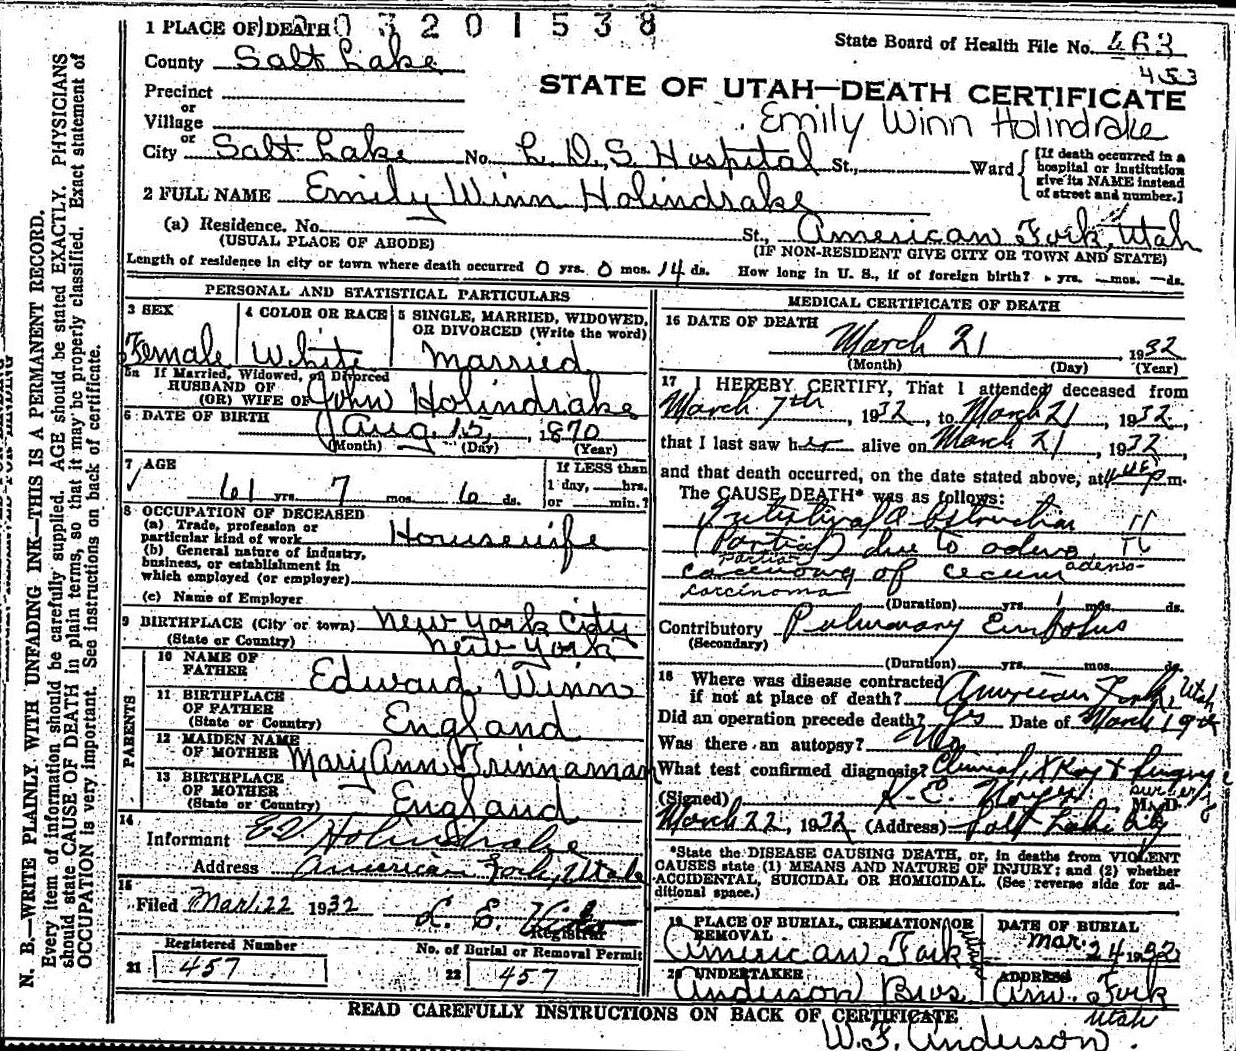 1 PLACE OF DEATH 0 3 2 0 1 5 3 8
State Board of Health File No. 463
453
County Salt Lake
STATE OF UTAH—DEATH CERTIFICATE
Precinct
or
Village
Emily Winn Holindrake
or
City Salt Lake No. L. D. S. Hospital St., Ward
[If death occurred in a
hospital or institution
give its NAME instead
of street and number.]
2 FULL NAME Emily Winn Holindrake
(a) Residence. No. St., American Fork, Utah
(USUAL PLACE OF ABODE) (IF NON-RESIDENT GIVE CITY OR TOWN AND STATE)
Length of residence in city or town where death occurred 0 yrs. 0 mos. 14 ds. How long in U. S., if of foreign birth? yrs. mos. ds.
PERSONAL AND STATISTICAL PARTICULARS
3 SEX
Female
4 COLOR OR RACE
White
5 SINGLE, MARRIED, WIDOWED,
OR DIVORCED (Write the word)
Married
5a If Married, Widowed, or Divorced
HUSBAND OF
(OR) WIFE OF John Holindrake
6 DATE OF BIRTH
Aug 15, 1870
(Month) (Day) (Year)
7 AGE
61 yrs. 7 mos. 6 ds.
If LESS than
1 day, hrs.
or min.?
8 OCCUPATION OF DECEASED
(a) Trade, profession or
particular kind of work Housewife
(b) General nature of industry,
business, or establishment in
which employed (or employer)
(c) Name of Employer
9 BIRTHPLACE (City or town) New York City
(State or Country) New York
PARENTS
10 NAME OF
FATHER Edward Winn
11 BIRTHPLACE
OF FATHER
(State or Country) England
12 MAIDEN NAME
OF MOTHER Mary Ann Brinnaman
13 BIRTHPLACE
OF MOTHER
(State or Country) England
14
Informant Ed Holindrake
Address American Fork, Utah
15
Filed Mar. 22 1932 L. E.
Registrar
Registered Number
21 457
No. of Burial or Removal Permit
22 457
MEDICAL CERTIFICATE OF DEATH
16 DATE OF DEATH
March 21 1932
(Month) (Day) (Year)
17 I HEREBY CERTIFY, That I attended deceased from
March 7th, 1932, to March 21, 1932,
that I last saw her alive on March 21, 1932,
and that death occurred, on the date stated above, at p m.
The CAUSE DEATH* was as follows:
Intestinal Obstruction
(Partial) due to adeno
Partial
carcinoma of cecum adeno-
carcinoma
(Duration) yrs. 1 mos. ds.
Contributory Pulmonary Embolus
(Secondary)
(Duration) yrs. mos. ds.
18 Where was disease contracted
if not at place of death? American Fork, Utah
Did an operation precede death? Yes Date of March 19th
Was there an autopsy? No
What test confirmed diagnosis? Clinical, X Ray & surgery
surgery
(Signed) M. D.
March 22, 1932 (Address) Salt Lake City
*State the DISEASE CAUSING DEATH, or, in deaths from VIOLENT
CAUSES state (1) MEANS AND NATURE OF INJURY; and (2) whether
ACCIDENTAL, SUICIDAL OR HOMICIDAL. (See reverse side for ad-
ditional space.)
19 PLACE OF BURIAL, CREMATION, OR
REMOVAL
American Fork Utah
DATE OF BURIAL
Mar. 24 1932
20 UNDERTAKER
Anderson Bros.
ADDRESS
Am. Fork
Utah
READ CAREFULLY INSTRUCTIONS ON BACK OF CERTIFICATE
W. F. Anderson.
N. B.—WRITE PLAINLY WITH UNFADING INK—THIS IS A PERMANENT RECORD.
Every item of information should be carefully supplied. AGE should be stated EXACTLY. PHYSICIANS
should state CAUSE OF DEATH in plain terms, so that it may be properly classified. Exact statement of
OCCUPATION is very important. See instructions on back of certificate.